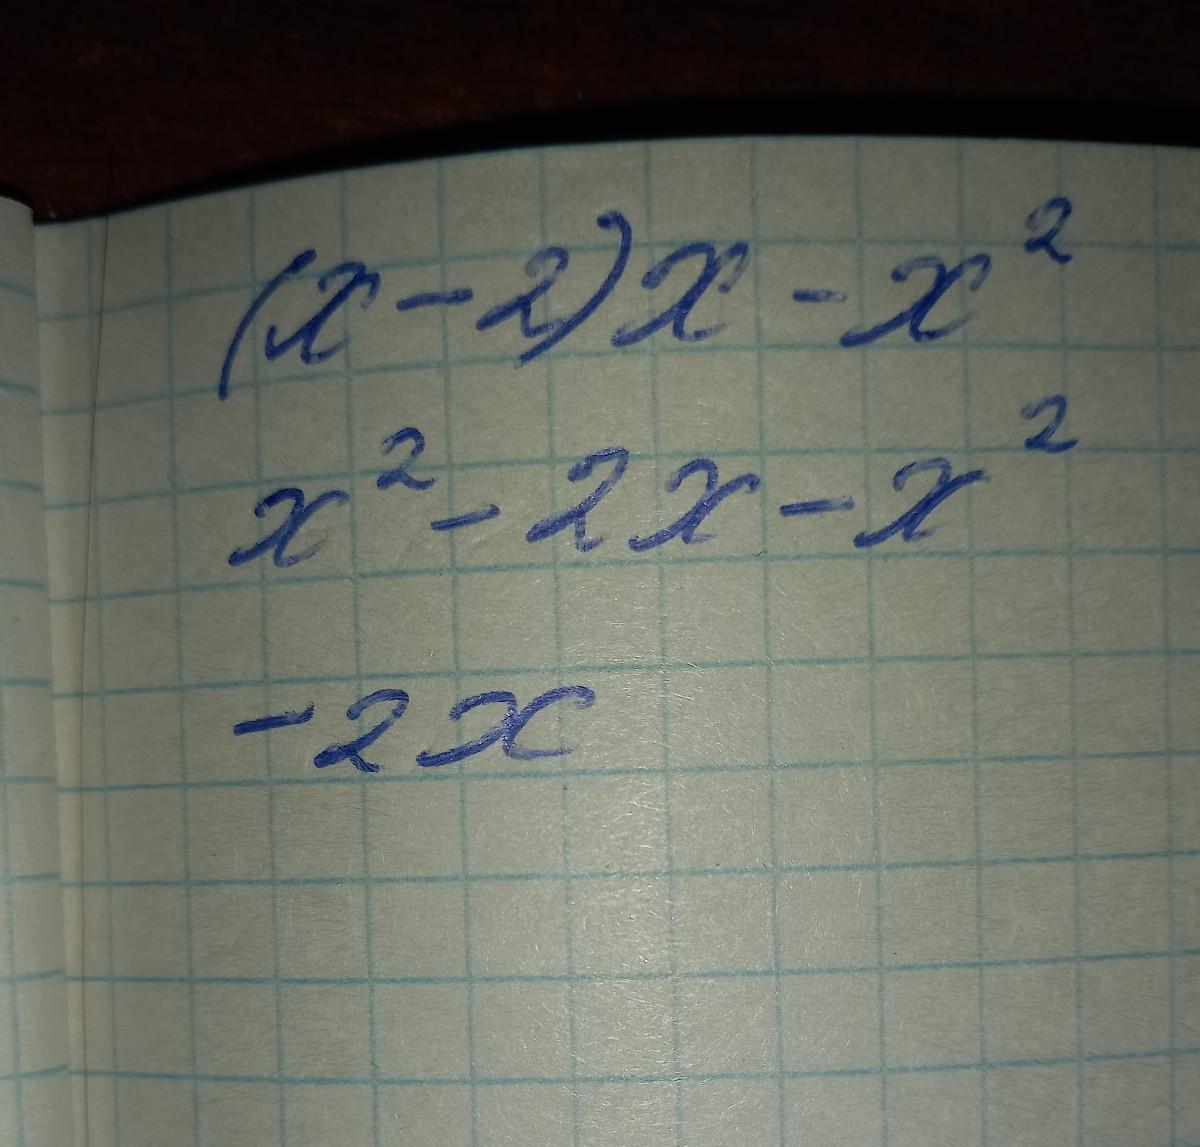 (x-2)x-x²
x²-2x-x²
-2x